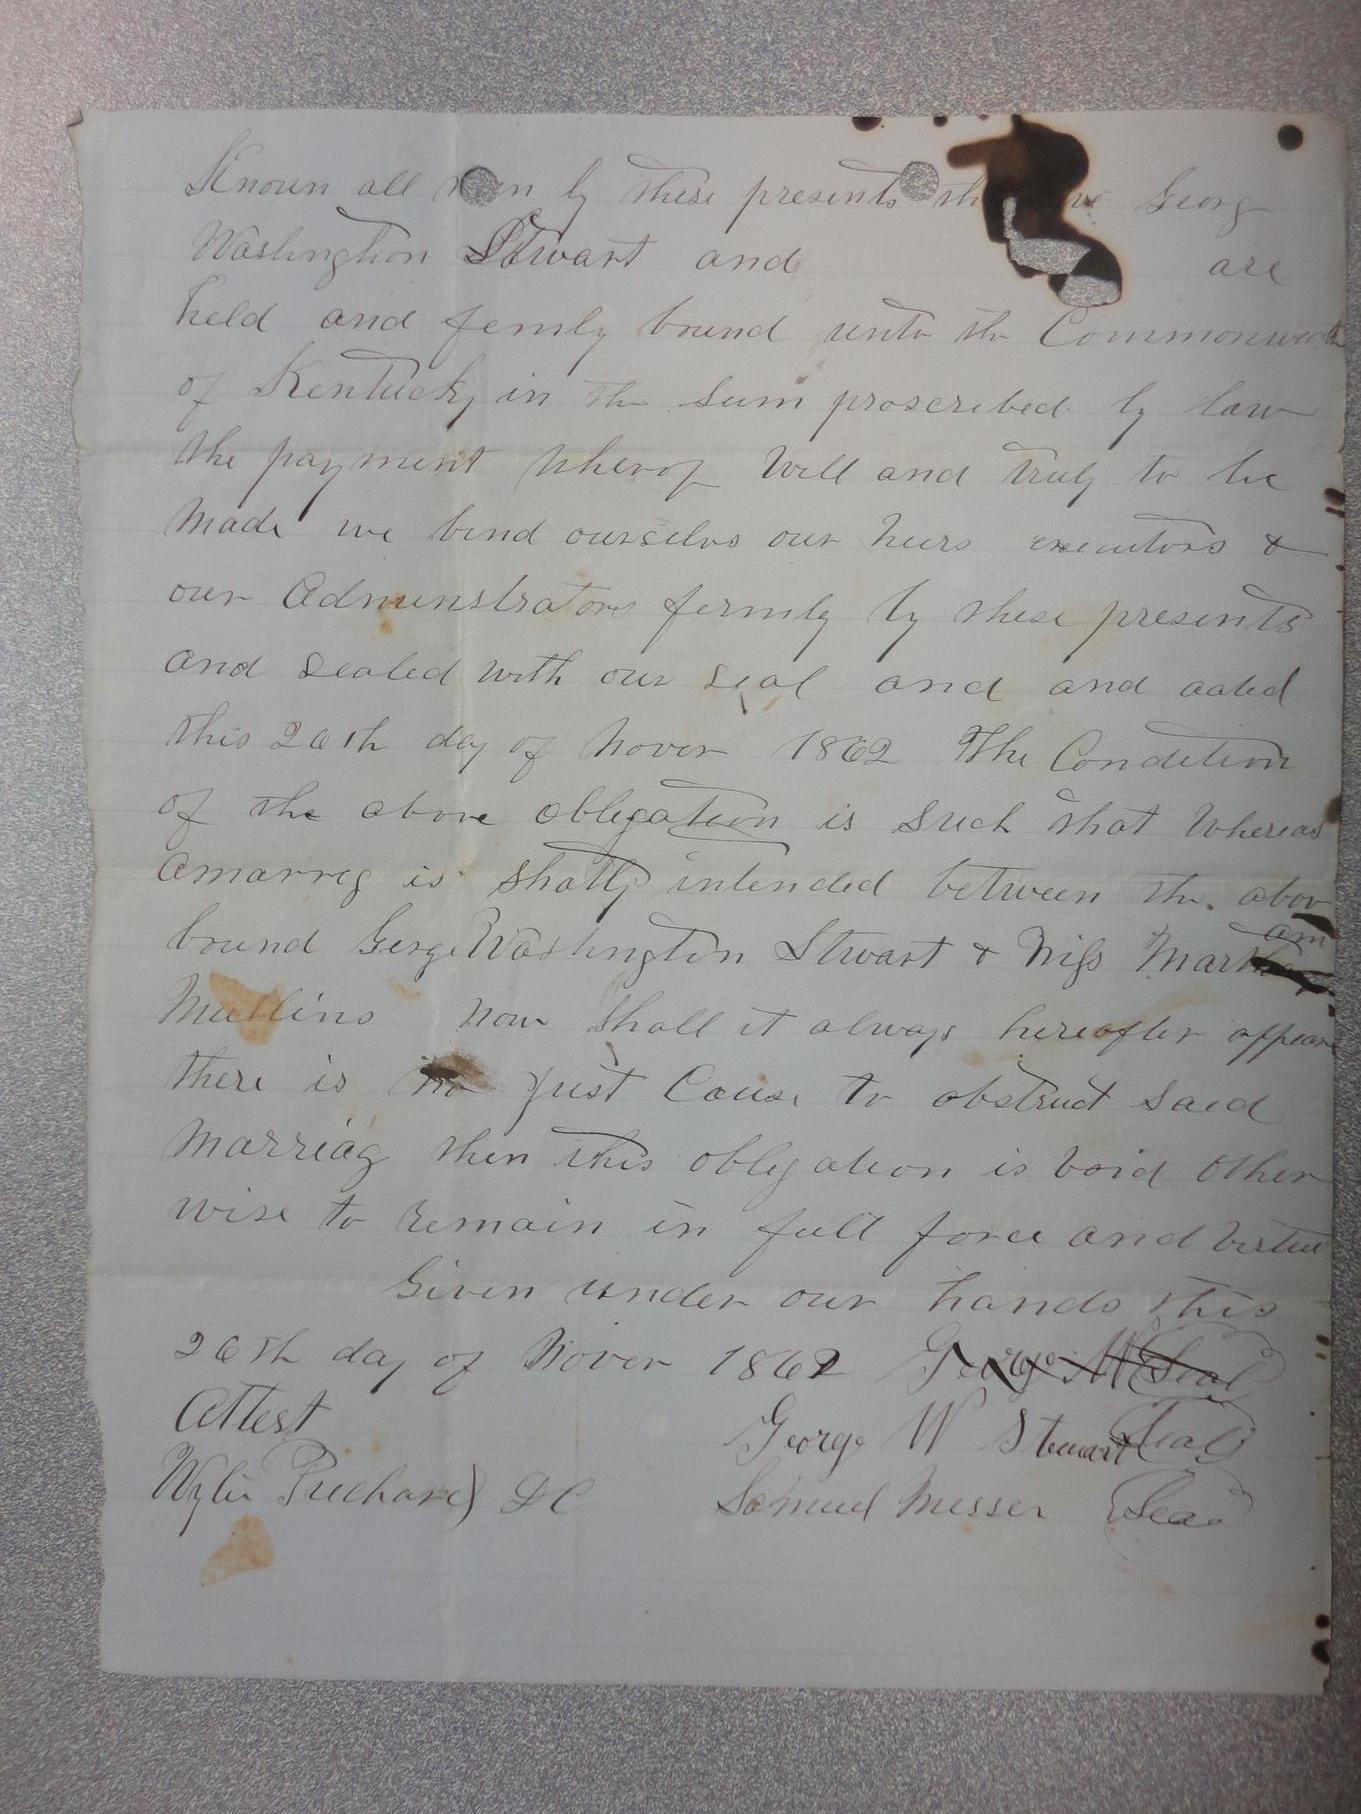 Known all men by these presents th we Georg
Washington Stwart and are
held and fermly bound unto the Commonwealth
of Kentucky in the sum proscribed by law
the payment wherof Will and truly to be
Made we bind ourselvs our heirs executors &
our Adminstrators fermly by these presents
and sealed with our seal and and aated
this 26th day of Nover 1862 The Condition
of the above obligation is Such that Whereas
amarreg is shotly intended between the abov
bound Gerge Washington Stwart & Miss Mart
am
Mullins now shall it always hereafter appear
there is no just Cause to obstruct said
Marriag then this obligation is void other
wise to remain in full force and virtue
Given under our hands this
26th day of Nover 1862 George W Seal
Attest
George W Stewart Seal
Wylie Prichard DC Samuel Messer Seal